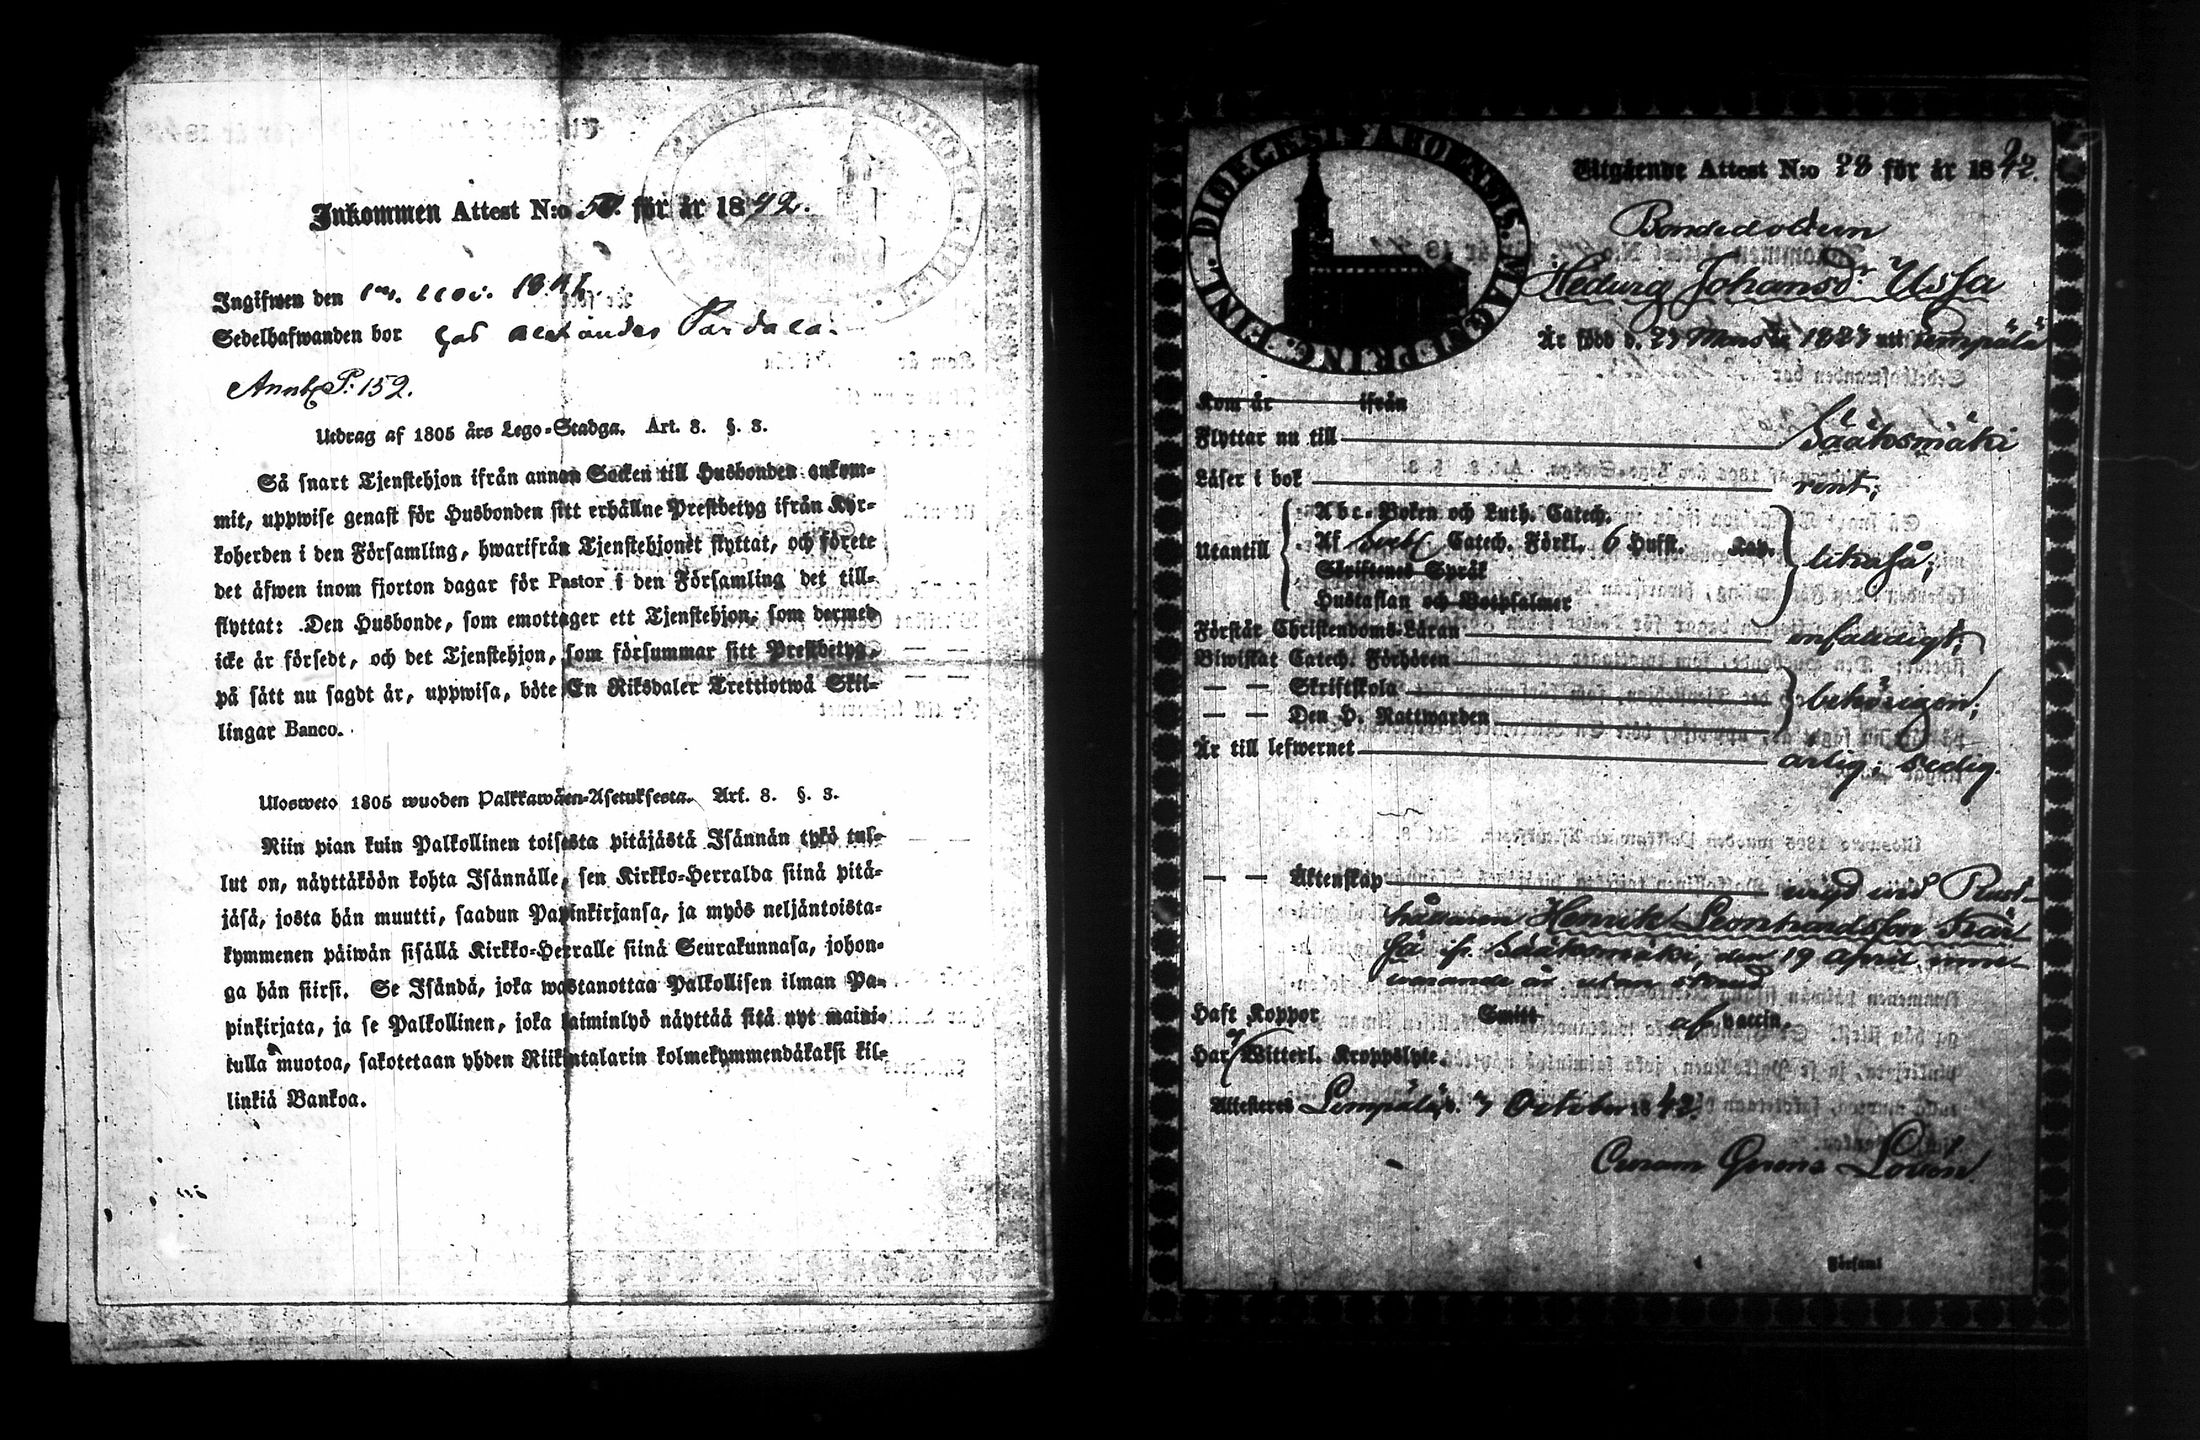 Inkommen Attest N:o 50. för år 1842.
Ingifwen den
Sedelhafwanden bor hos Alexander
Annb. P: 152.
Utdrag af 1805 års Lego-Stadga. Art. 8. §. 3.
Så snart Tjenstehjon ifrån annan Socken till Husbonden ankom-
mit, uppwise genast för Husbonden sitt erhållne Prestbetyg ifrån Kyr-
koherden i den Församling, hwarifrån Tjenstehjonet flyttat, och förete
det äfwen inom fjorton dagar för Pastor i den Församling det till-
flyttat: Den Husbonde, som emottager ett Tjenstehjon, som dermed
icke är försedt, och det Tjenstehjon, som försummar sitt Prestbetyg,
på sätt nu sagdt är, uppwisa, böte En Riksdaler Trettiotwå Skil-
lingar Banco.
Ulosweto 1805 wuoden Palkkawäen-Asetuksesta. Art. 8. §. 3.
Niin pian kuin Palkollinen toisesta pitäjästä Isännän tykö tul-
lut on, näyttäköön kohta Isännälle, sen Kirkko-Herralda siinä pitä-
jäsä, josta hän muutti, saadun Papinkirjansa, ja myös neljäntoista-
kymmenen päiwän sisällä Kirkko-Herralle siinä Seurakunnasa, johon-
ga hän siirsi. Se Isändä, joka wastanottaa Palkollisen ilman Pa-
pinkirjata, ja se Palkollinen, joka laiminlyö näyttää sitä nyt maini-
tulla muotoa, sakotetaan yhden Riikintalarin kolmekymmendäkaksi kil-
linkiä Bankoa.
FINL. DIOECESIS ABOENSIS. MAGN. PRINC.
Utgående Attest N:o 28 för år 1842.
Bondedottern
Hedvig Johansdr Ussa
Är född d. 27 Mars år 1823 uti Lempälä
Kom år ifrån
Flyttar nu till Sääksmäki
Läser i bok rent;
Abc-Boken och Luth. Catech.
Utantill Af Catech. Förkl. 6 Hufst. Kap. likaså;
Skriftenes Språk
Hustaflan och Botpsalmer
Förstår Christendoms-Läran enfaldigt;
Biwistat Catech. Förhören
— — Skriftskola behörigen;
— — Den H. Nattwarden
Är till lefwernet ärlig; sedig.
— — Äktenskap wigd med Rust-
hållaren Henrik Leonhardsson
fr. Sääksmäki, den 19 April inne-
varande år utan
Haft Koppor Smitt af vaccin.
Har Witterl. Kroppslyte.
Attesteras Lempälä, d. 7 October 1842.
Curam Gerens Lovén
Församl